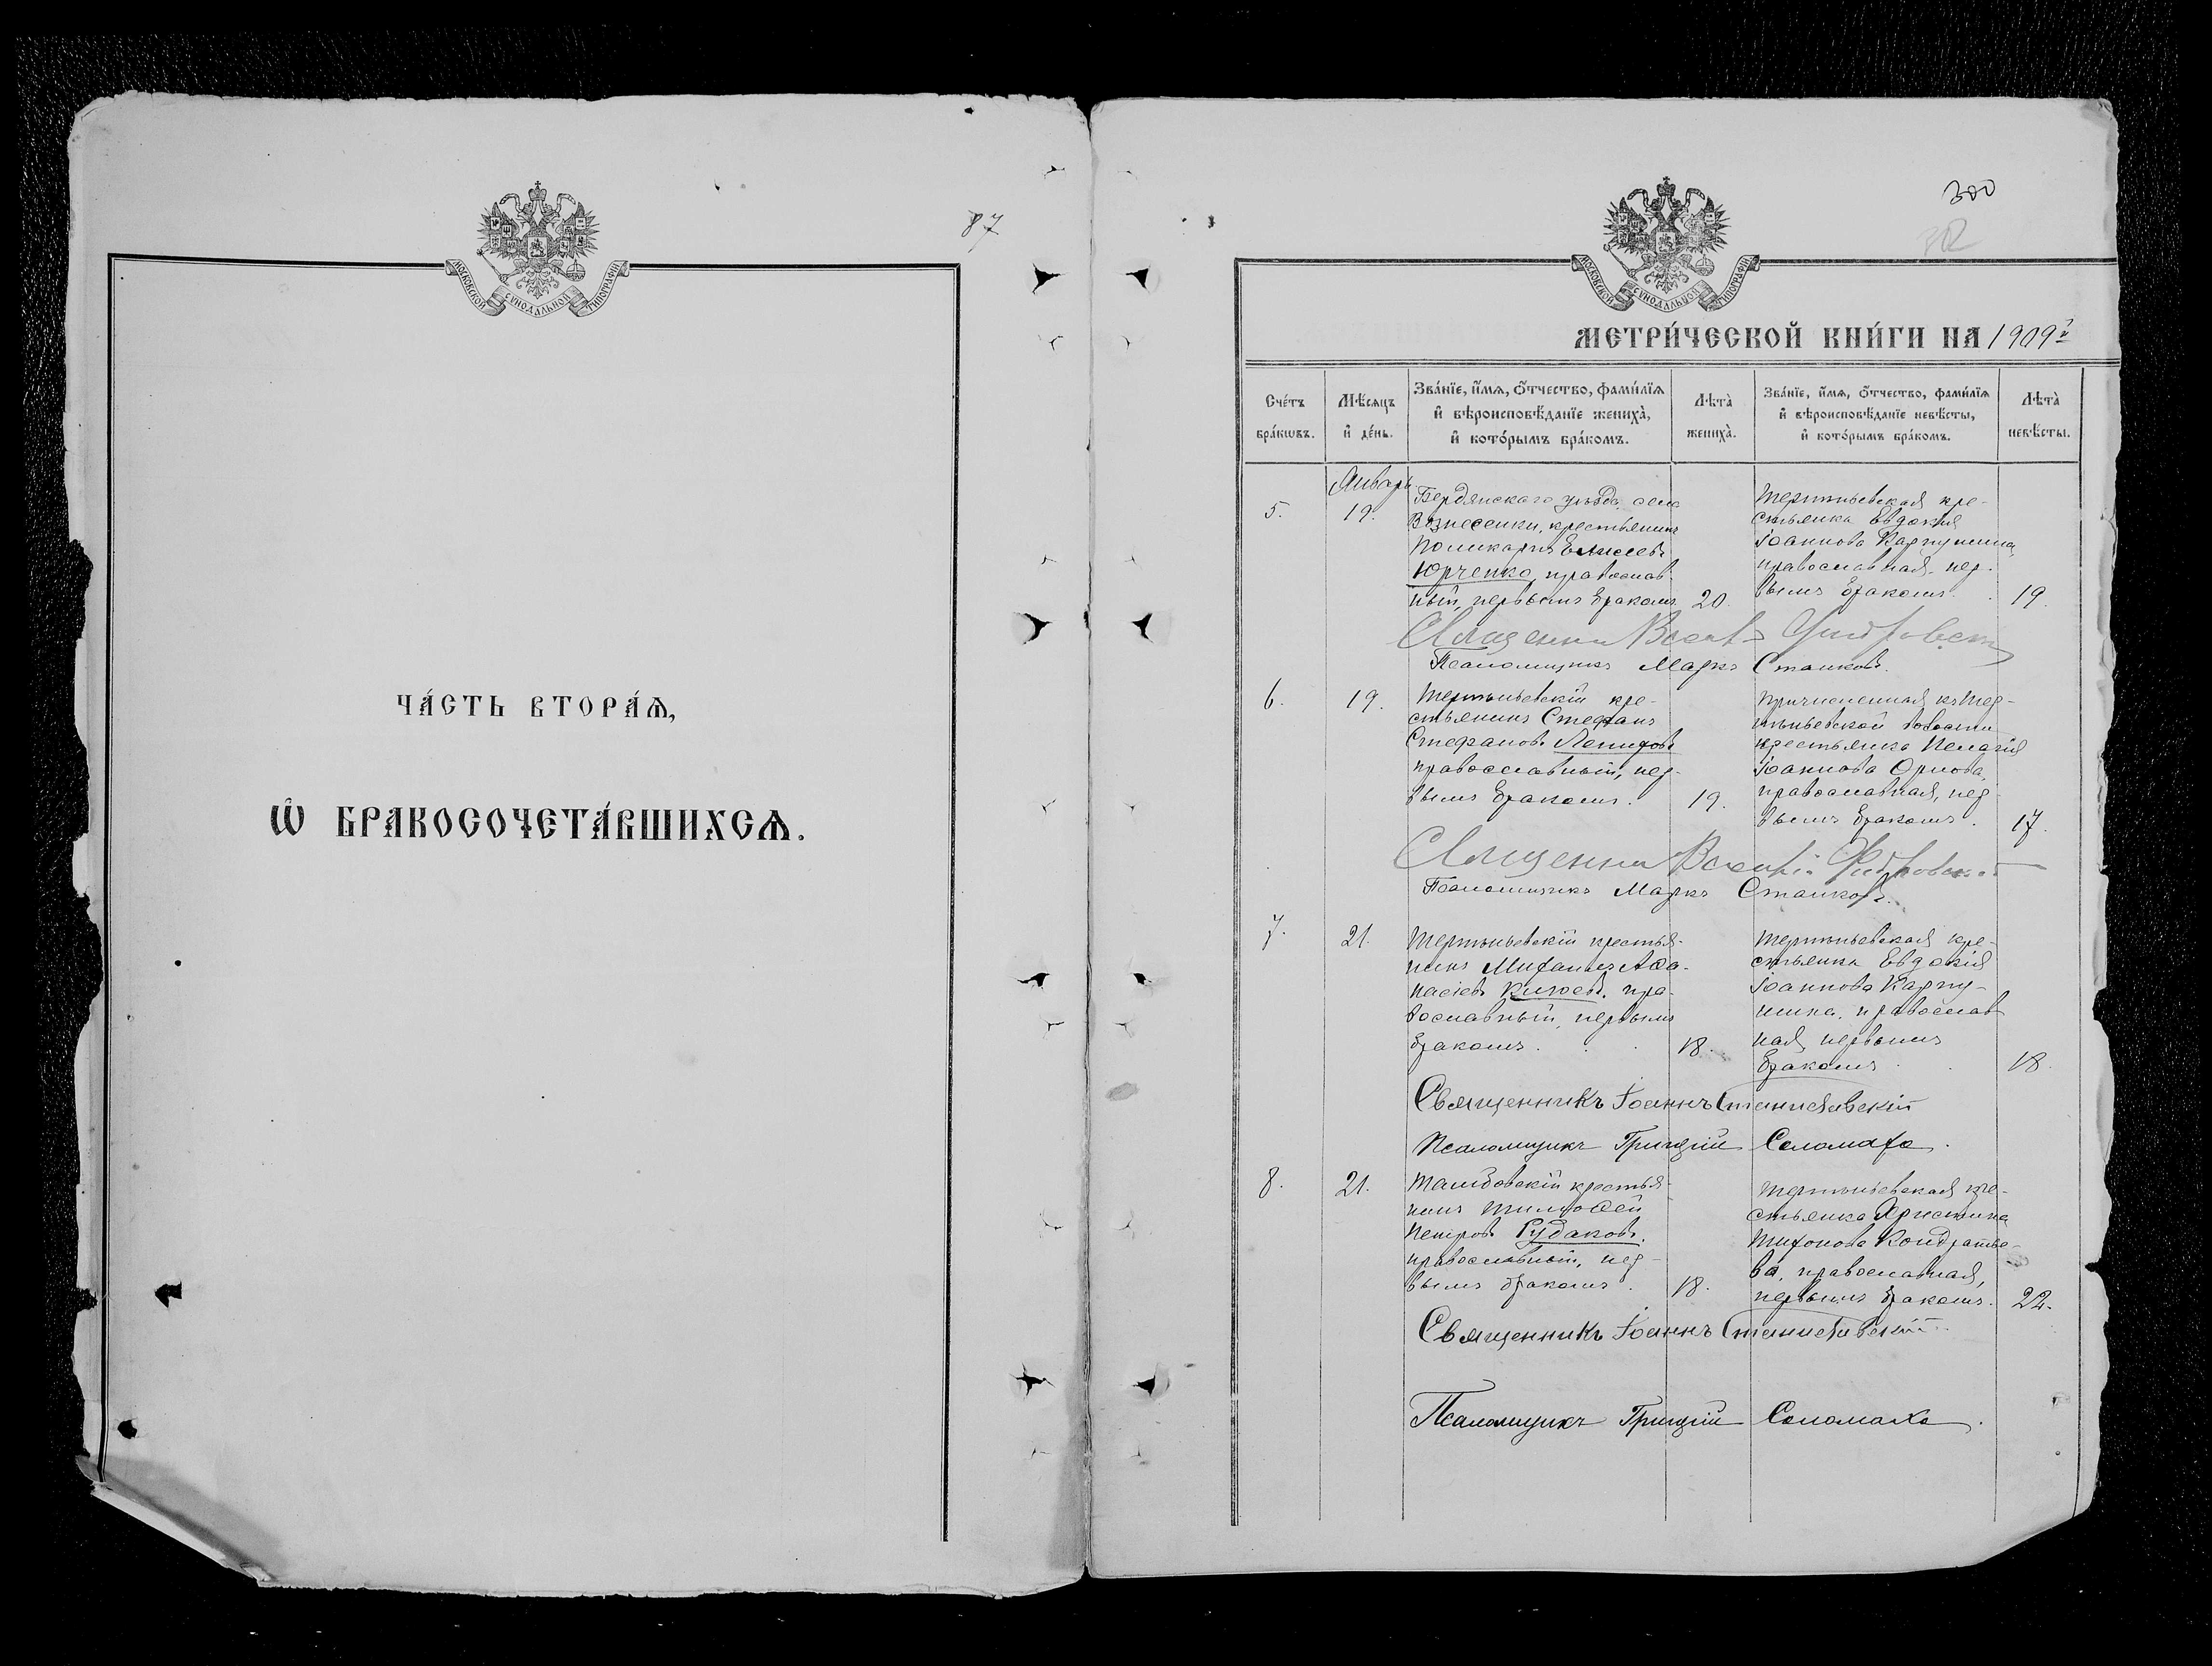 МОСКОВСКОЙ СѴНОДАЛЬНОЙ ТИПОГРАФІИ
87
ЧА́СТЬ ВТОРА́Ѧ,
Ѽ БРАКОСОЧЕТА́ВШИХСѦ.
300
МОСКОВСКОЙ СѴНОДАЛЬНОЙ ТИПОГРАФІИ
МЕТРИ́ЧЕСКОЙ КНИ́ГИ НА 1909й
Сче́тъ бра́кѡвъ.
Мѣ́сяцъ и҆ де́нь.
Зва́нїе, и҆́мѧ, ѻ҆́тчество, фами́лїѧ и҆ вѣроисповѣ́данїе жениха̀, и҆ кото́рымъ бра́комъ.
Лѣта̀ жениха̀.
Зва́нїе, и҆́мѧ, ѻ҆́тчество, фами́лїѧ и҆ вѣроисповѣ́данїе невѣ́сты, и҆ кото́рымъ бра́комъ.
Лѣта̀ невѣ́сты.
Январь
5.
19.
Бердянскаго уѣзда, села
Вознесенки, крестьянинъ
Поликарпъ Елисеевъ
Юрченко, православ-
ный, первымъ бракомъ
20.
Терпѣньевская кре-
стьянка Евдокія
Іоаннова Карпушина
православная, пер-
вымъ бракомъ.
19.
Псаломщикъ Маркъ Сташковъ.
6.
19.
Терпѣньевскій кре-
стьянинъ Стефанъ
Стефановъ
православный, пер-
вымъ бракомъ.
19.
Причисленная къ Тер-
пѣньевской волости
крестьянка Пелагія
Іоаннова Орлова,
православная, пер-
вымъ бракомъ.
17.
Псаломщикъ Маркъ Сташковъ.
7.
21.
Терпѣньевскій крестья-
нинъ Михаилъ Аѳа-
насіевъ пра-
вославный, первымъ
бракомъ.
18.
Терпѣньевская кре-
стьянка Евдокія
Іоаннова Карпу-
шина, православ
ная, первымъ
бракомъ.
18.
Священникъ Іоаннъ Станиславскій
Псаломщикъ Григорій Соломаха.
8.
21.
крестья-
нинъ Тимоѳей
Петровъ Рудаковъ,
православный, пер-
вымъ бракомъ.
18.
Терпѣньевская кре-
стьянка Христина
Тихонова Кондратье-
ва, православная,
первымъ бракомъ.
22.
Священникъ Іоаннъ Станиславскій
Псаломщикъ Григорій Соломаха.